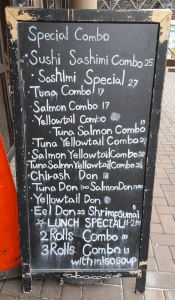 Special Combo
Sushi Sashimi Combo 25
Sashimi Special 27
Tuna Combo 17
Salmon Combo 17
Yellowtail Combo
Tuna Salmon Combo
Tuna Yellowtail Combo
Salmon Yellowtail Combo
Tuna Salmon Yellowtail Combo
Chirashi Don
Tuna Don Salmon Don
Yellowtail Don
Eel Don Shrimp Sumai
LUNCH SPECIAL
2 Rolls Combo
3 Rolls Combo 13
with miso soup